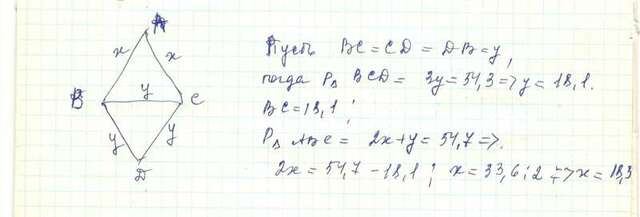 A
x x
B y C
y y
D
Пусть BC = CD = DB = y,
тогда P∆ BCD = 3y = 54,3 => y = 18,1.
BC = 18,1;
P∆ ABC = 2x + y = 54,7 =>.
2x = 54,7 - 18,1; x = 33,6 : 2 => x = 18,3